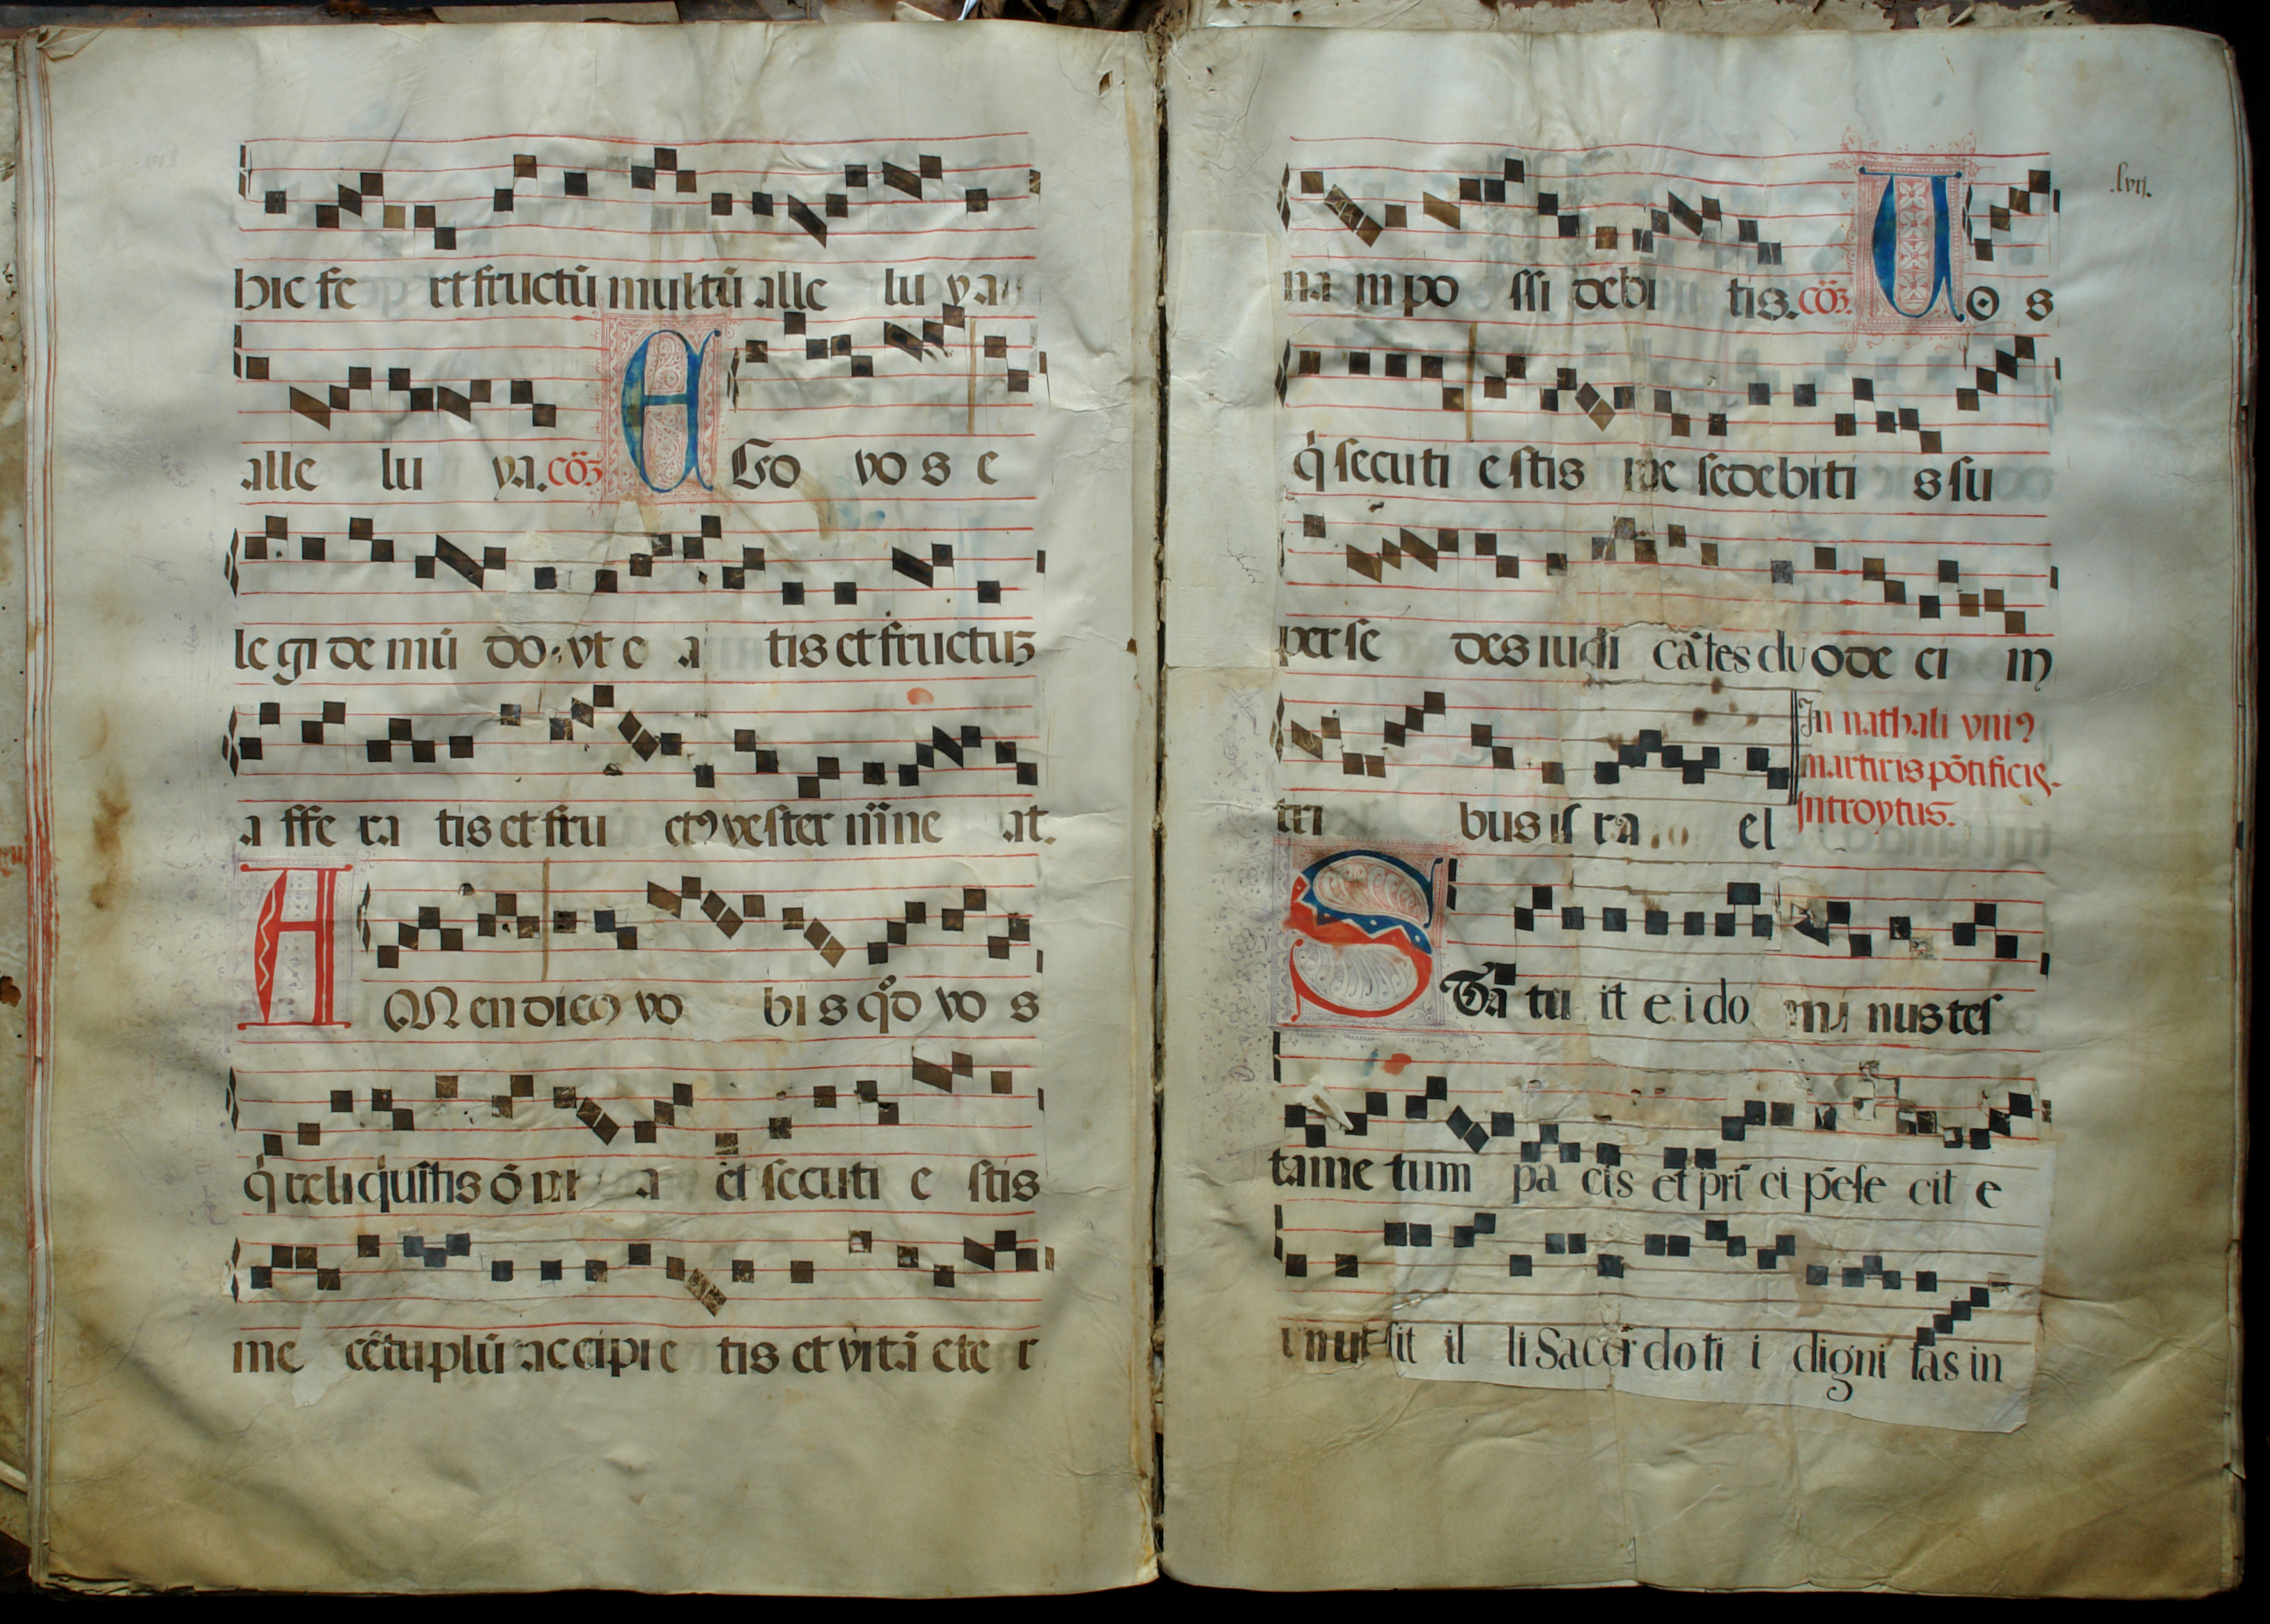 hic fe rt fructū multū alle lu ya
alle lu ya. cōꝫ E Go vo s e
le gi de mū do. vt e a tis et fructuꝫ
a ffe ra tis et fru ctꝰ vester m̄ne at.
A Men dico vo bi s qd̄ vo s
q̄ reliquistis ō ni a et secuti e stis
me cētuplū accipie tis et vitā ete r
.lvij.
na m po ssi debi tis. cōꝫ. V o s
q̄ secuti e stis me sedebiti s su
per se des iudi cātes duode ci m
In nathali vniꝰ
martiris pōtificis.
Introytus.
tri bus is ra el
S Ta tu it e i do mi nus tes
tame tum pa cis et pri ci pē fe cit e
um ut sit il li Sacer do ti i digni tas in